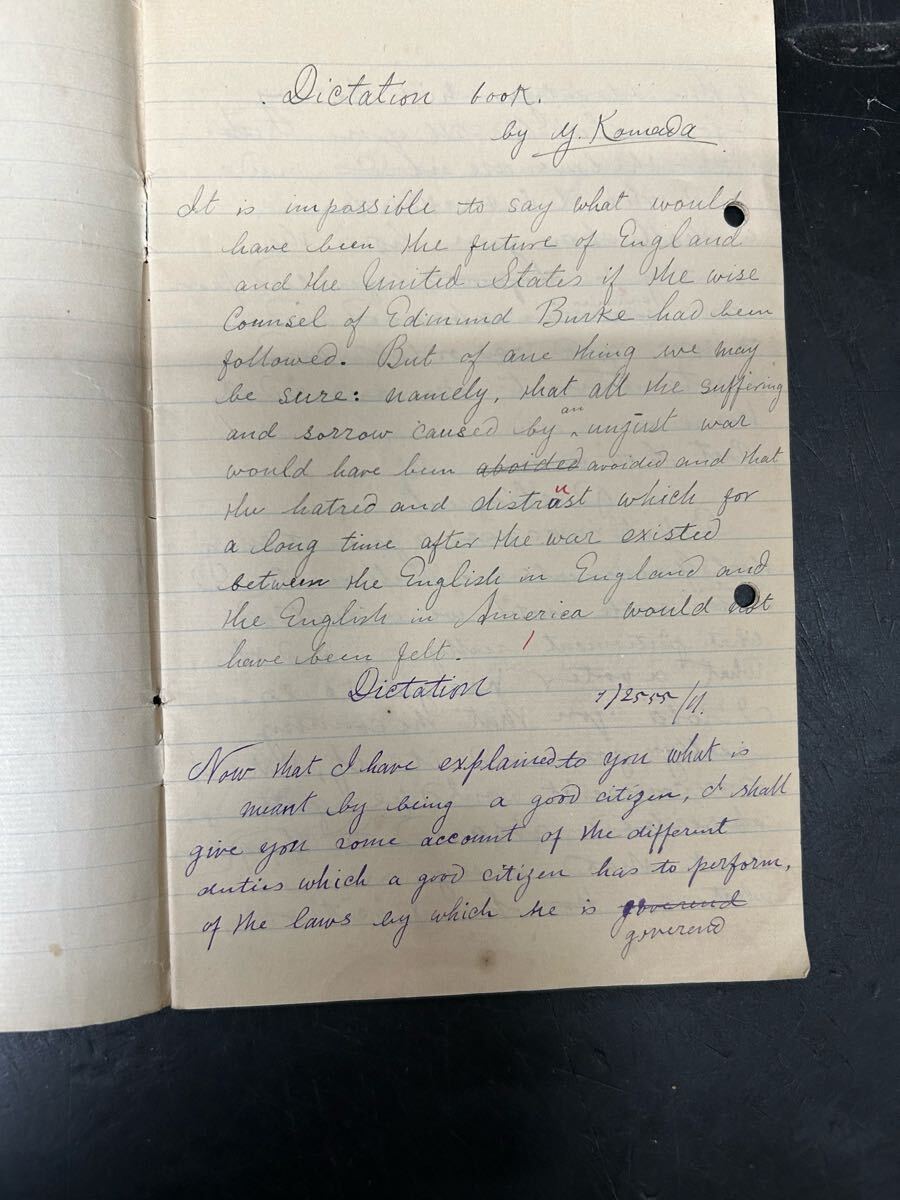 Dictation book.
by Y. Komada
It is impossible to say what would
have been the future of England
and the United States if the wise
Counsel of Edmund Burke had been
followed. But of one thing we may
be sure: namely, that all the suffering
and sorrow caused by an unjust war
would have been aboided avoided and that
the hatred and distrust which for
a long time after the war existed
between the English in England and
the English in America would not
have been felt.
Dictation
Now that I have explained to you what is
meant by being a good citizen, I shall
give you some account of the different
duties which a good citizen has to perform,
of the laws by which he is goverend
goverend